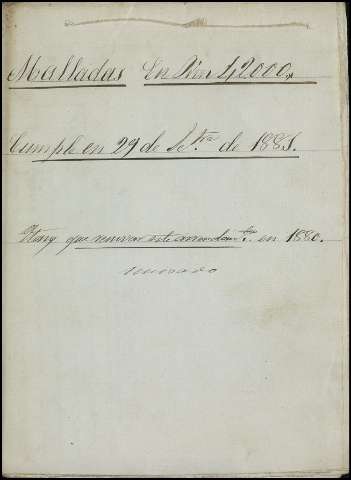 Malladas En Rvn 42000.
Cumple en 29 de Sete. de 1881.
Hay que renovar este arrendamto. en 1880.
renovado